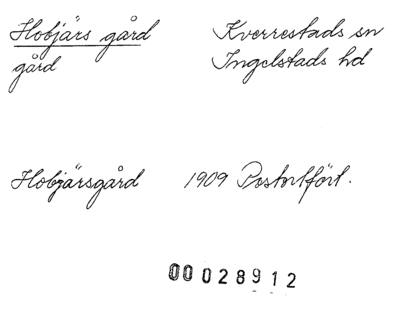 Hobjärs gård Kverrestads sn
gård Ingelstads hd
Hobjärsgård 1909 Postortfört.
00028912